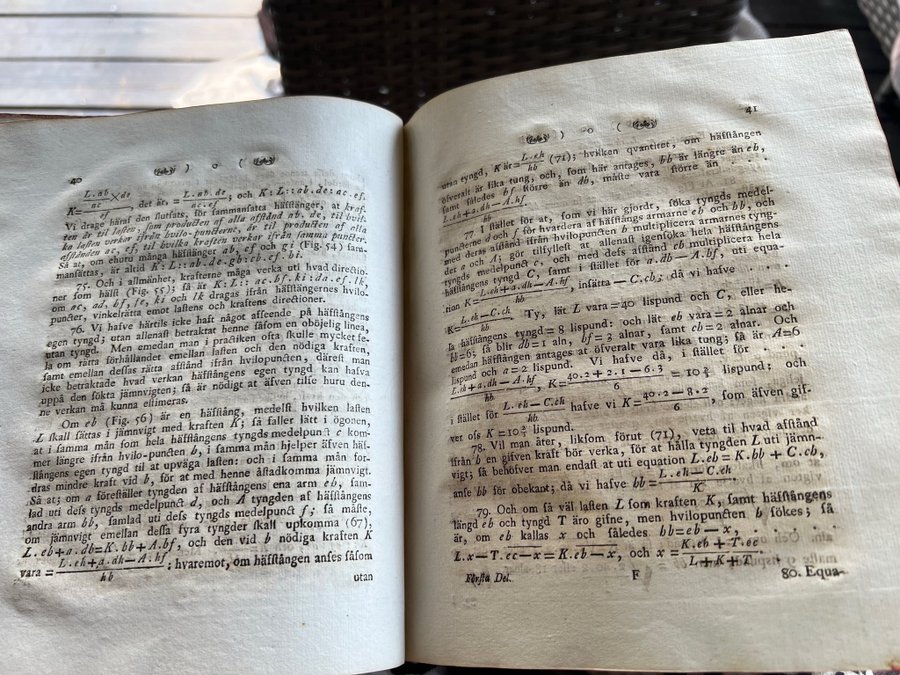 40 ) o (
K = L.ab/ac × de/ef, det är, = L.ab.de/ac.ef; och K:L::ab.de:ac.ef.
Vi drage häraf den slutsats, för sammansatta häfstänger, at kraf-
ten är til lasten, som producten af alla afstånd ab, de, til hvil-
ka lasten verkar ifrån hvilo-puncterne, är til producten af alla
afstånden ac, ef, til hvilka kraften verkar ifrån samma puncter.
Så at, om ehuru många häfstänger ab, ef och gi (Fig. 54) sam-
mansättas, är altid K:L::ab.de.gb:cb.ef.bi.
75. Och i allmänhet, krafterne måga verka uti hvad directio-
ner som hälst (Fig. 55); så är K:L::ac.bf.ki:da.ef.lk,
om ac, ad, bf, fe, ki och lk dragas ifrån häfstängernes hvilo-
puncter, vinkelrätta emot lastens och kraftens directioner.
76. Vi hafve härtils icke haft något afseende på häfstängens
egen tyngd; utan allenast betraktat henne såsom en oböjelig linea,
utan tyngd. Men emedan man i practiken ofta skulle mycket fe-
la om rätta förhållandet emellan lasten och den nödiga kraften,
samt emellan dessas rätta afstånd ifrån hvilopuncten, därest man
icke betraktade hvad verkan häfstångens egen tyngd kan hafva
uppå den sökta jämnvigten; så är nödigt at äfven tilse huru den-
ne verkan må kunna estimeras.
Om eb (Fig. 56) är en häfstång, medelst hvilken lasten
L skall sättas i jämnvigt med kraften K; så faller lätt i ögonen,
at i samma mån som hela häfstångens tyngds medelpunct c kom-
mer längre ifrån hvilo-puncten b, i samma mån hjelper äfven häf-
stångens egen tyngd til at upväga lasten: och i samma mån for-
dras mindre kraft vid b, för at med henne åstadkomma jämnvigt.
Så at; om a föreställer tyngden af häfstångens ena arm eb, sam-
lad uti dess tyngds medelpunct d, och A tyngden af häfstångens
andra arm bb, samlad uti dess tyngds medelpunct f; så måste,
om jämnvigt emellan dessa fyra tyngder skall upkomma (67),
L.eb + a.db = K.bb + A.bf, och den vid b nödiga kraften K
vara = L.eh + a.dh − A.hf/hb; hvaremot, om häfstången anses såsom
utan
) o ( 41
utan tyngd, K är = L.eh/hb (71); hvilken qvantitet, om häfstången
öfveralt är lika tung, och, som här antages, bb är längre än eb,
samt således bf större än db, måste vara större än . . .
L.eh + a.dh − A.hf/hb
77. I stället för at, som vi här gjordt, söka tyngds medel-
puncterne d och f för hvardera af häfstångs armarne eb och bb, och
med deras afstånd ifrån hvilopuncten b multiplicera armarnes tyng-
der a och A; gör tilfyllest at allenast igensöka hela häfstångens
tyngds medelpunct c, och med dess afstånd eb multiplicera hela
häfstångens tyngd C, samt i stället för a.db − A.bf, uti equa-
tion K = L.eh + a.dh − A.hf/hb, insätta − C.cb; då vi hafve . .
K = L.eh − C.ch/hb. Ty, låt L vara = 40 lispund och C, eller he-
la häfstångens tyngd = 8 lispund: och låt eb vara = 2 alnar och
bb = 6; så blir db = 1 aln, bf = 3 alnar, samt cb = 2 alnar. Och
emedan häfstången antages at öfveralt vara lika tung; så är A = 6
lispund och a = 2 lispund. Vi hafve då, i stället för . . . .
L.eh + a.dh − A.hf/hb, K = 40.2 + 2.1 − 6.3/6 = 10⅔ lispund; och
i stället för L.eh − C.ch/hb hafve vi K = 40.2 − 8.2/6, som äfven gif-
ver oss K = 10⅔ lispund.
78. Vil man åter, liksom förut (71), veta til hvad afstånd
ifrån b en gifven kraft bör verka, för at hålla tyngden L uti jämn-
vigt; så behöfver man endast at uti equation L.eb = K.bb + C.cb,
anse bb för obekant; då vi hafve bb = L.eh − C.ch/K.
79. Och om så väl lasten L som kraften K, samt häfstångens
längd eb och tyngd T äro gifne, men hvilopuncten b sökes; så
är, om eb kallas x och således bb = eb − x, . . . .
L.x − T.ec − x = K.eb − x, och x = K.eb + T.ec/L + K + T.
Första Del. F 80. Equa-